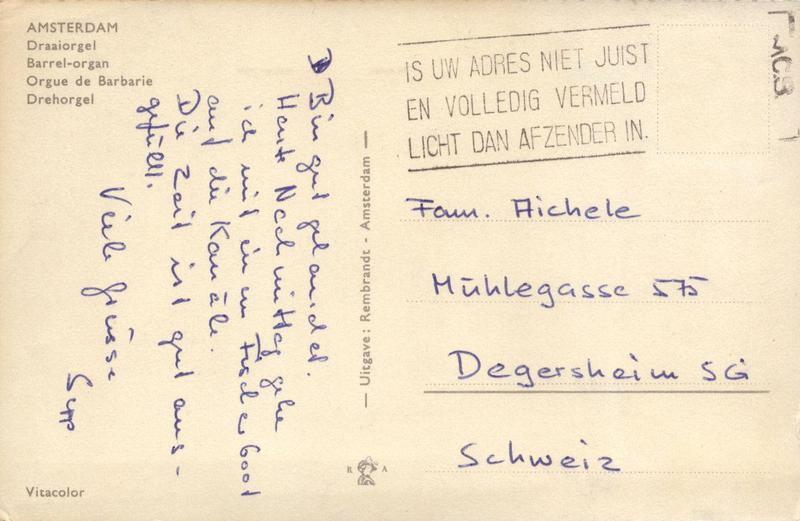 AMSTERDAM
Draaiorgel
Barrel-organ
Orgue de Barbarie
Drehorgel
Bin gut gelandet.
Heute Nachmittag gehe
ich mit einem Fischerboot
auf die Kanäle.
Die Zeit ist gut aus-
gefüllt.
Viele Grüsse
Sepp
— Uitgave: Rembrandt - Amsterdam —
R A
Vitacolor
IS UW ADRES NIET JUIST
EN VOLLEDIG VERMELD
LICHT DAN AFZENDER IN.
Fam. Aichele
Mühlegasse 575
Degersheim SG
Schweiz